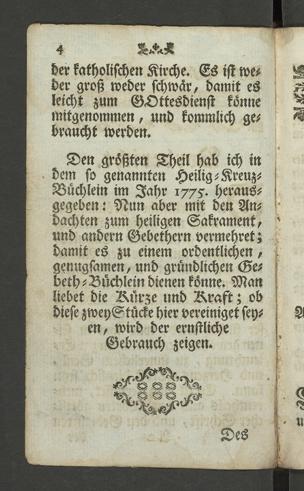 4
der katholischen Kirche. Es ist we-
der groß weder schwär, damit es
leicht zum GOttesdienst könne
mitgenommen, und kommlich ge-
braucht werden.
Den größten Theil hab ich in
dem so genannten Heilig-Kreuz-
Büchlein im Jahr 1775. heraus-
gegeben: Nun aber mit den An-
dachten zum heiligen Sakrament,
und andern Gebethern vermehret;
damit es zu einem ordentlichen,
genugsamen, und gründlichen Ge-
beth-Büchlein dienen könne. Man
liebet die Kürze und Kraft; ob
diese zwey Stücke hier vereiniget sey-
en, wird der ernstliche
Gebrauch zeigen.
Des